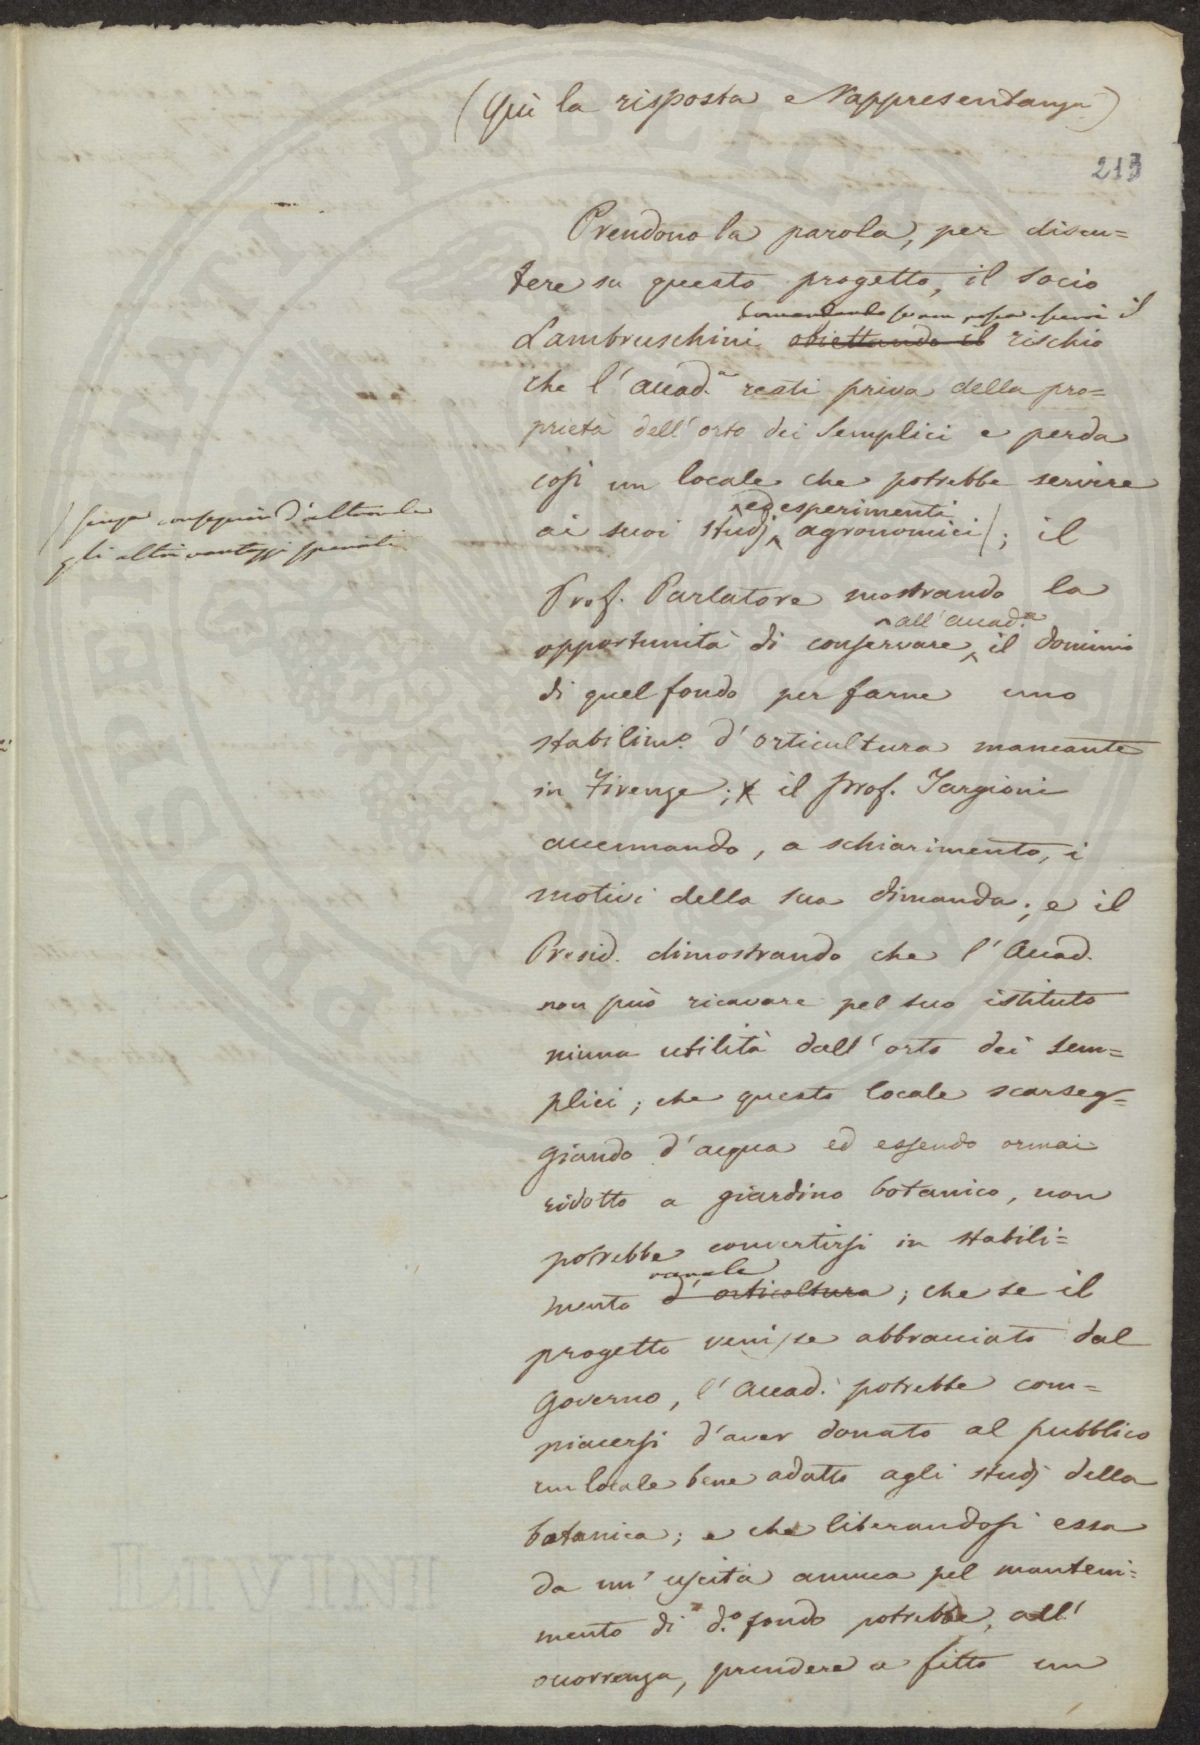 (Quì la risposta e Rappresentanza)
213
Prendono la parola, per discu=
tere su questo progetto, il socio
domandando se non possa esservi il
Lambruschini obiettando il rischio
che l'Accad.a resti priva della pro=
prietà dell'orto dei Semplici e perda
così un locale che potrebbe servire
ed esperimenti
ai suoi studj agronomici /; il
/ senza conseguire d'altronde
gli altri vantaggi sperati
Prof. Parlatore mostrando la
all'Accad.a
opportunità di conservare il dominio
di quel fondo per farne uno
stabilim.o d'orticultura mancante
in Firenze; il Prof. Targioni
accennando, a schiarimento, i
motivi della sua dimanda; e il
Presid. dimostrando che l'Accad.
non può ricavare pel suo istituto
niuna utilità dall'orto dei Sem=
plici; che questo locale scarseg=
giando d'acqua ed essendo ormai
ridotto a giardino botanico, non
potrebbe convertirsi in stabili=
mento d'orticoltura; che se il
progetto venisse abbracciato dal
Governo, l'Accad. potrebbe com=
piacersi d'aver donato al pubblico
un locale bene adatto agli studj della
botanica; e che liberandosi essa
da un'uscita annua pel manteni=
mento di d.o fondo potrebbe, all'
occorrenza, prendere a fitto un